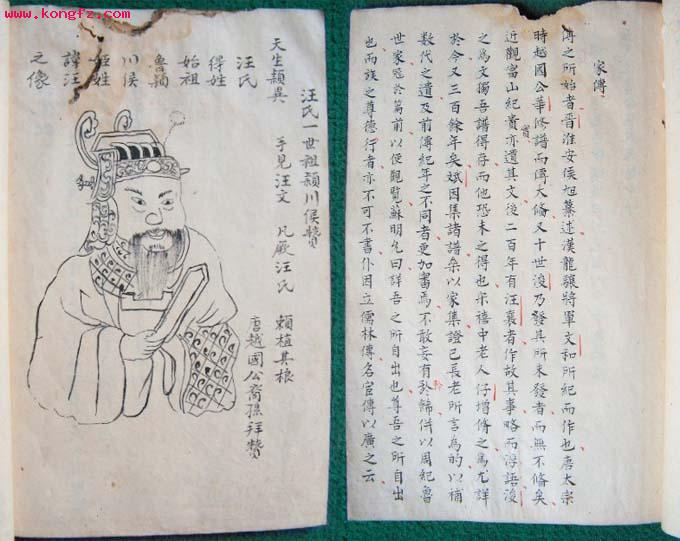 www.kongfz.com
家傳
傳之所始者晉淮安侯旭纂述漢龍驤將軍文和所紀而作也唐太宗
時越國公華修譜而傳大脩又十世浚乃發其所未發者而無不脩矣
近觀富山紀賁亦遺其文後二百年有汪襄者作故其事略而得語浚
之為文獨吾譜得存而他恐未之得也宋禧中老人仔增脩之為尤詳
於今又三百餘年矣斌因集諸譜叅以家集證已長老所言為的以補
數代之遺及前傳紀年之不同者更加書焉不敢妄有併以周紀魯
世家冠於篇前以便觀覧蘇明允曰詳吾之所自出也尊吾之所自出
也而族之尊德行者亦不可不書仆因立儒林傳名宦傳以廣之云
汪氏一世祖潁川侯贊
天生潁異 手見汪文 凡厥汪氏 賴植其根
唐越國公裔孫拜贊
汪氏
得姓
始祖
魯潁
川侯
姬姓
諱汪
之像